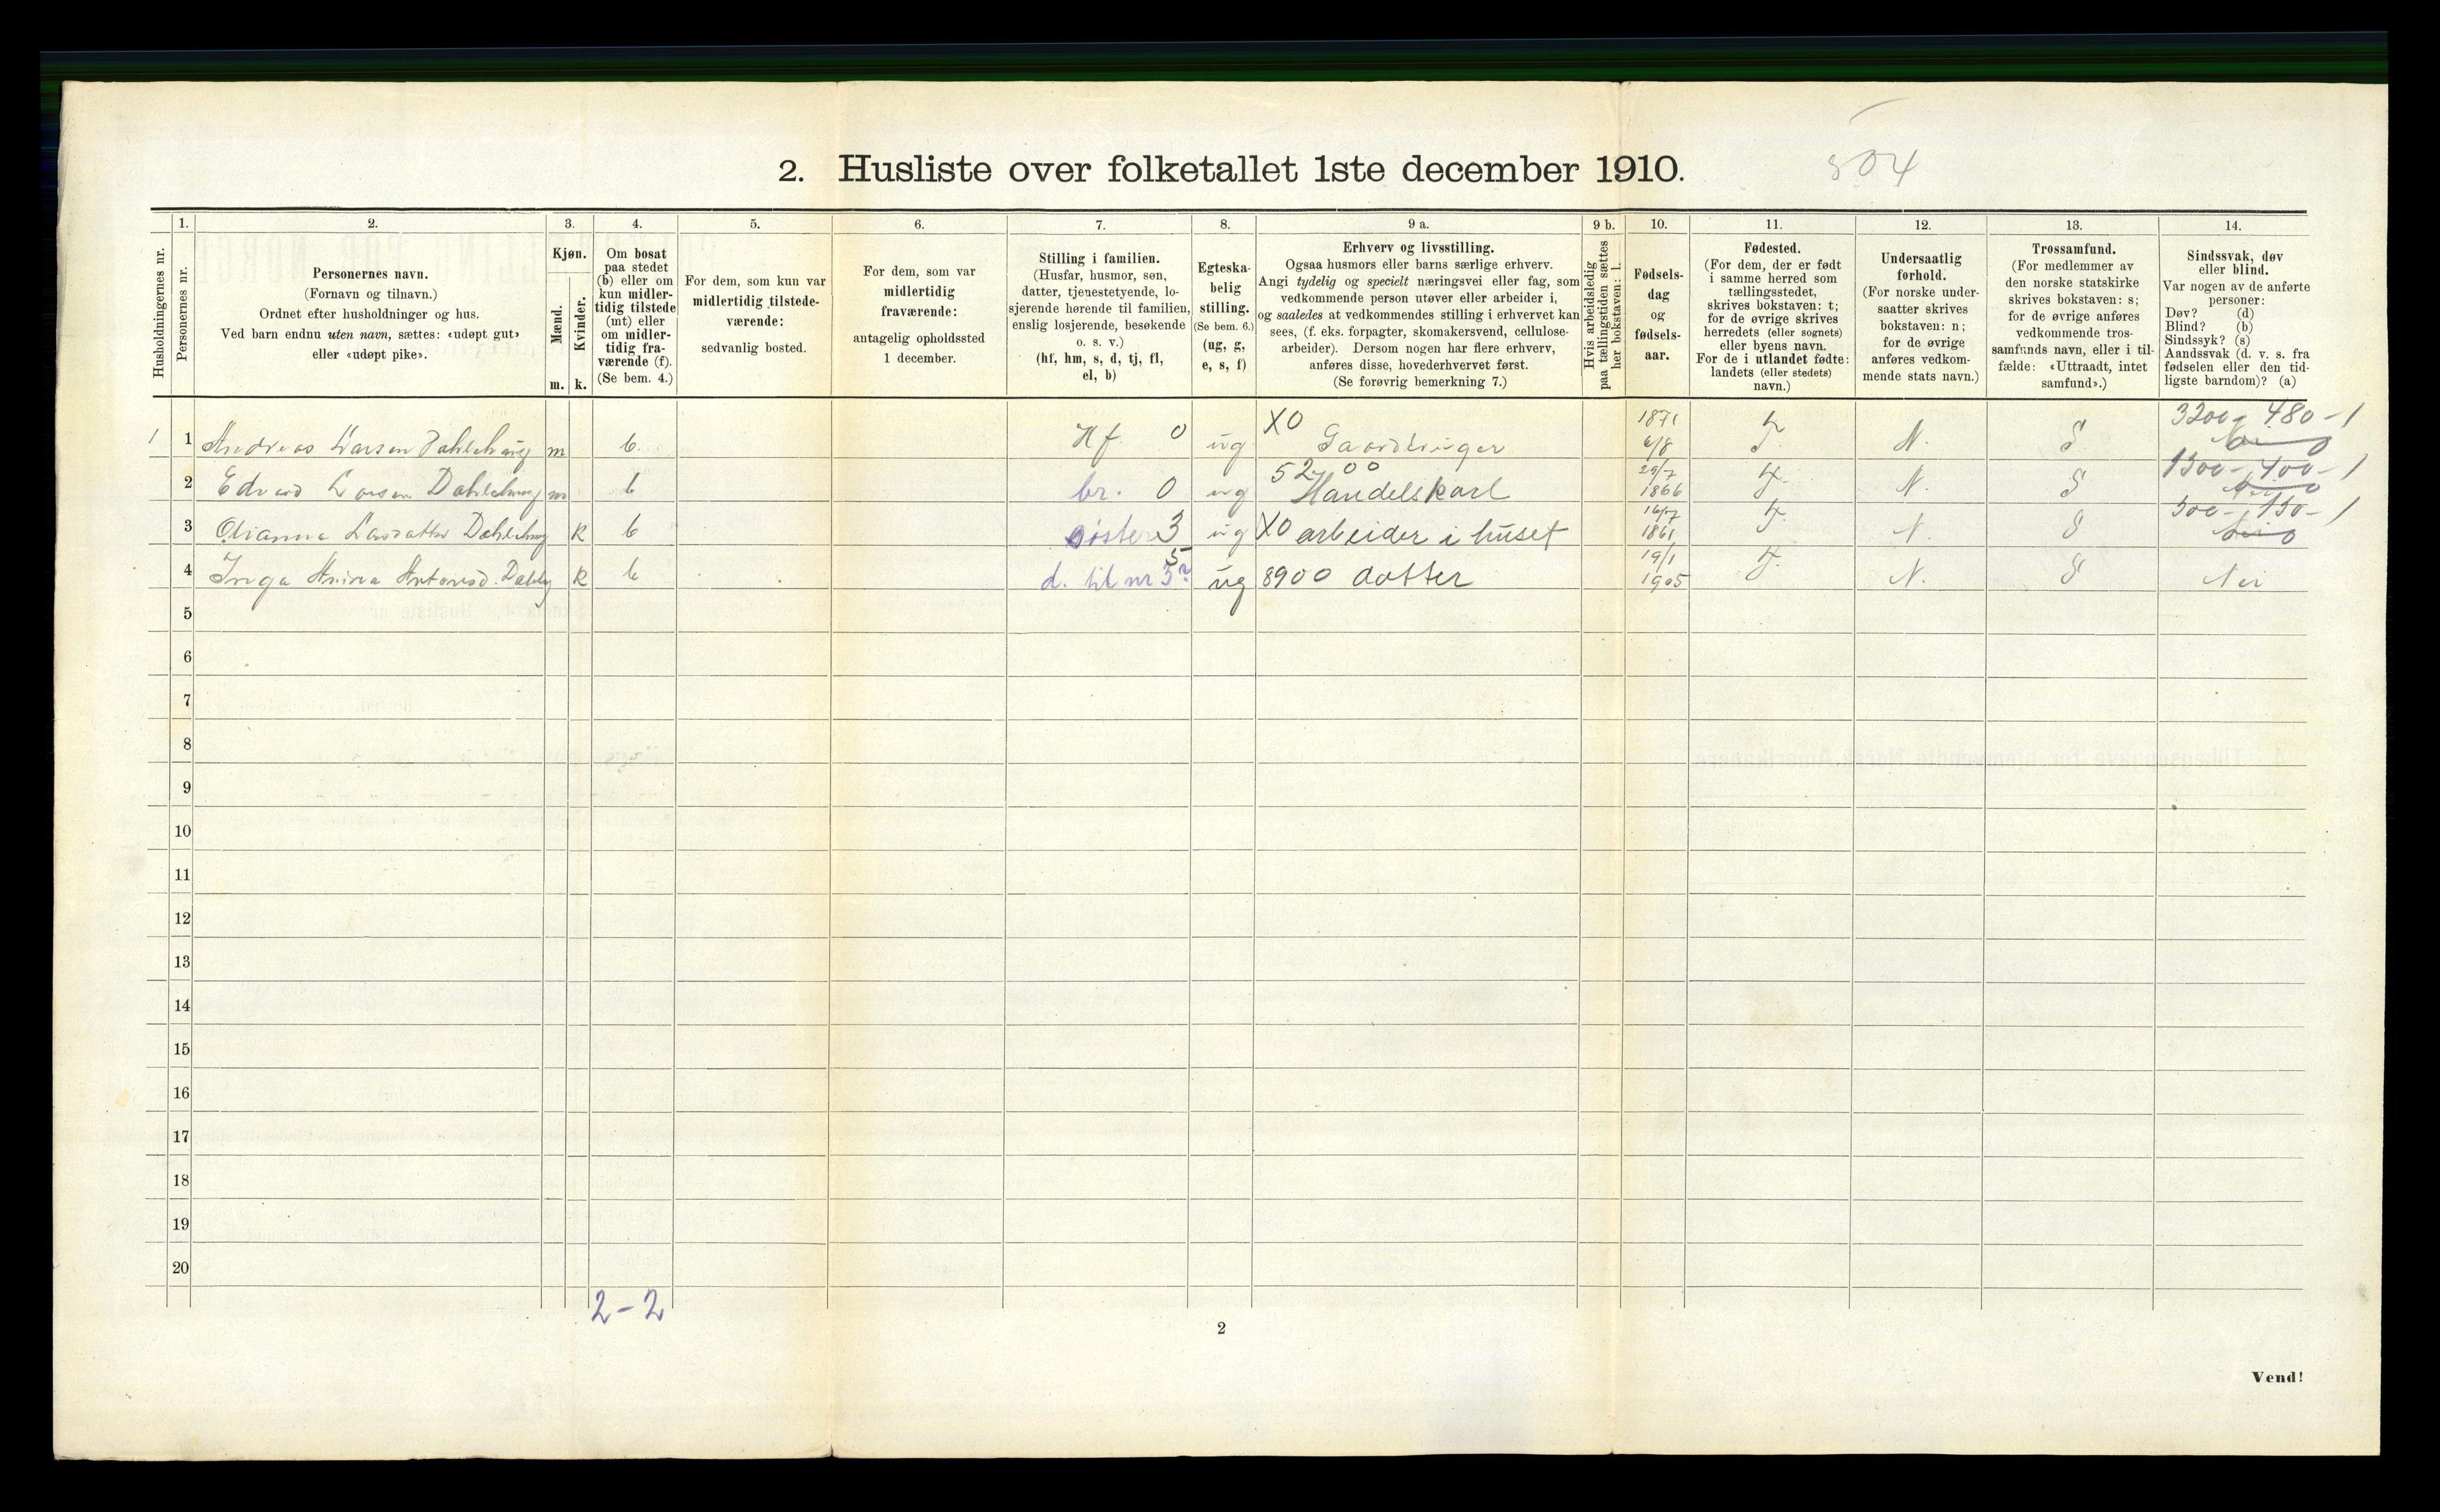 504
2. Husliste over folketallet 1ste december 1910.
Husholdningernes nr.
1. Personernes nr.
2. Personernes navn.
(Fornavn og tilnavn.)
Ordnet efter husholdninger og hus.
Ved barn endnu uten navn, sættes: «udøpt gut»
eller «udøpt pike».
3. Kjøn.
Mænd. m.
Kvinder. k.
4. Om bosat
paa stedet
(b) eller om
kun midler-
tidig tilstede
(mt) eller
om midler-
tidig fra-
værende (f).
(Se bem. 4.)
5. For dem, som kun var
midlertidig tilstede-
værende:
sedvanlig bosted.
6. For dem, som var
midlertidig
fraværende:
antagelig opholdssted
1 december.
7. Stilling i familien.
(Husfar, husmor, søn,
datter, tjenestetyende, lo-
sjerende hørende til familien,
enslig losjerende, besøkende
o. s. v.)
(hf, hm, s, d, tj, fl,
el, b)
8. Egteska-
belig
stilling.
(Se bem. 6.)
(ug, g,
e, s, f)
9 a. Erhverv og livsstilling.
Ogsaa husmors eller barns særlige erhverv.
Angi tydelig og specielt næringsvei eller fag, som
vedkommende person utøver eller arbeider i,
og saaledes at vedkommendes stilling i erhvervet kan
sees, (f. eks. forpagter, skomakersvend, cellulose-
arbeider). Dersom nogen har flere erhverv,
anføres disse, hovederhvervet først.
(Se forøvrig bemerkning 7.)
9 b. Hvis arbeidsledig
paa tællingstiden sættes
her bokstaven: l.
10. Fødsels-
dag
og
fødsels-
aar.
11. Fødested.
(For dem, der er født
i samme herred som
tællingsstedet,
skrives bokstaven: t;
for de øvrige skrives
herredets (eller sognets)
eller byens navn.
For de i utlandet fødte:
landets (eller stedets)
navn.)
12. Undersaatlig
forhold.
(For norske under-
saatter skrives
bokstaven: n;
for de øvrige
anføres vedkom-
mende stats navn.)
13. Trossamfund.
(For medlemmer av
den norske statskirke
skrives bokstaven: s;
for de øvrige anføres
vedkommende tros-
samfunds navn, eller i til-
fælde: «Uttraadt, intet
samfund».)
14. Sindssvak, døv
eller blind.
Var nogen av de anførte
personer:
Døv? (d)
Blind? (b)
Sindssyk? (s)
Aandssvak (d. v. s. fra
fødselen eller den tid-
ligste barndom)? (a)
1 1 Andreas Larsen Dahlehaug m b. Hf 0 ug X0 Gaardbruger 1871 6/8 T. N. S 3200 - 480 - 1 Nei
2 Edvard Larsen Dahlehaug m b br. 0 ug 5200 Handelskarl 29/7 1866 T. N. S 1300 - 400 - 1 Nei
3 Olianna Larsdatter Dahlehaug k b søster 3 ug X0 arbeider i huset 16/7 1861 T. N. S 300 - 150 - 1 Nei
4 Inga Antonsd. k b d. til nr 3 5 ug 8900 datter 19/1 1905 T. N. S Nei
5
6
7
8
9
10
11
12
13
14
15
16
17
18
19
20
2-2
2
Vend!